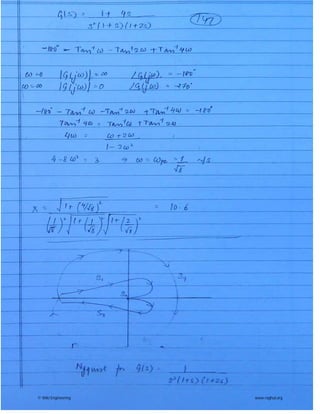 G(s) = 1 + 4s
s²(1+s)(1+2s)
142
-180° - Tan⁻¹ω - Tan⁻¹2ω + Tan⁻¹4ω
ω=0 |G(jω)| = ∞ ∠G(jω) = -180°
ω=∞ |G(jω)| = 0 ∠G(jω) = -270°
-180° - Tan⁻¹ω - Tan⁻¹2ω + Tan⁻¹4ω = -180°
Tan⁻¹4ω = Tan⁻¹ω + Tan⁻¹2ω
4ω = ω+2ω
1-2ω²
4-8ω² = 3 → ω = ωpc = 1/√8 r/s
x = √1+(4/√8)² = 10.6
(1/√8)² √1+(1/√8)² √1+(2/√8)²
Nyquist for G(s) = 1
s²(1+s)(1+2s)
www.raghul.org